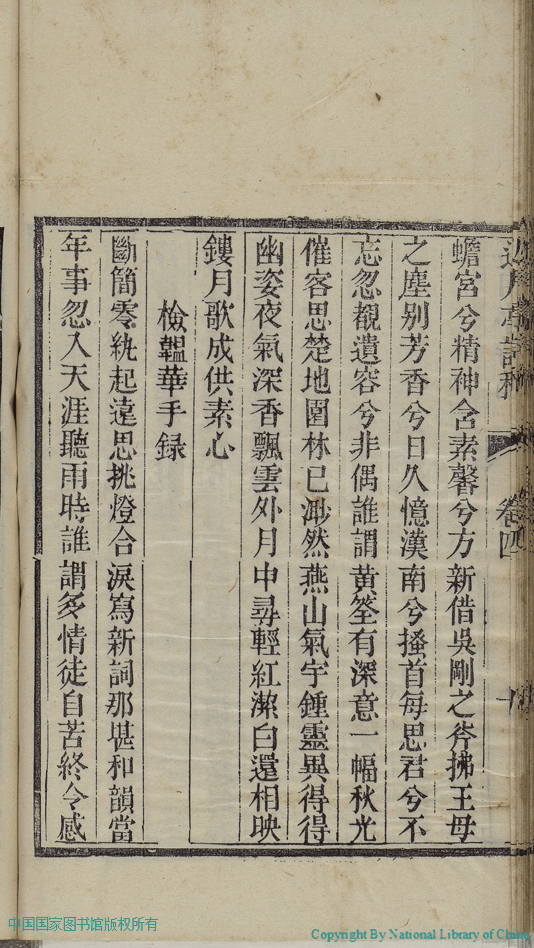 蟾宮兮精神含素馨兮方新借吳剛之斧拂王母
之塵别芳香兮日久憶漢南兮搔首每思君兮不
忘忽覩遺容兮非偶誰謂黄筌有深意一幅秋光
催客思楚地園林已渺然燕山氣宇鍾靈異得得
幽姿夜氣深香飄雲外月中尋輕紅潔白還相映
鏤月歌成供素心
檢韞華手録
斷簡零紈起遠思挑燈合淚寫新詞那堪和韻當
年事忽入天涯聽雨時誰謂多情徒自苦終令感
卷四
中国国家图书馆版权所有
Copyright By National Library of China